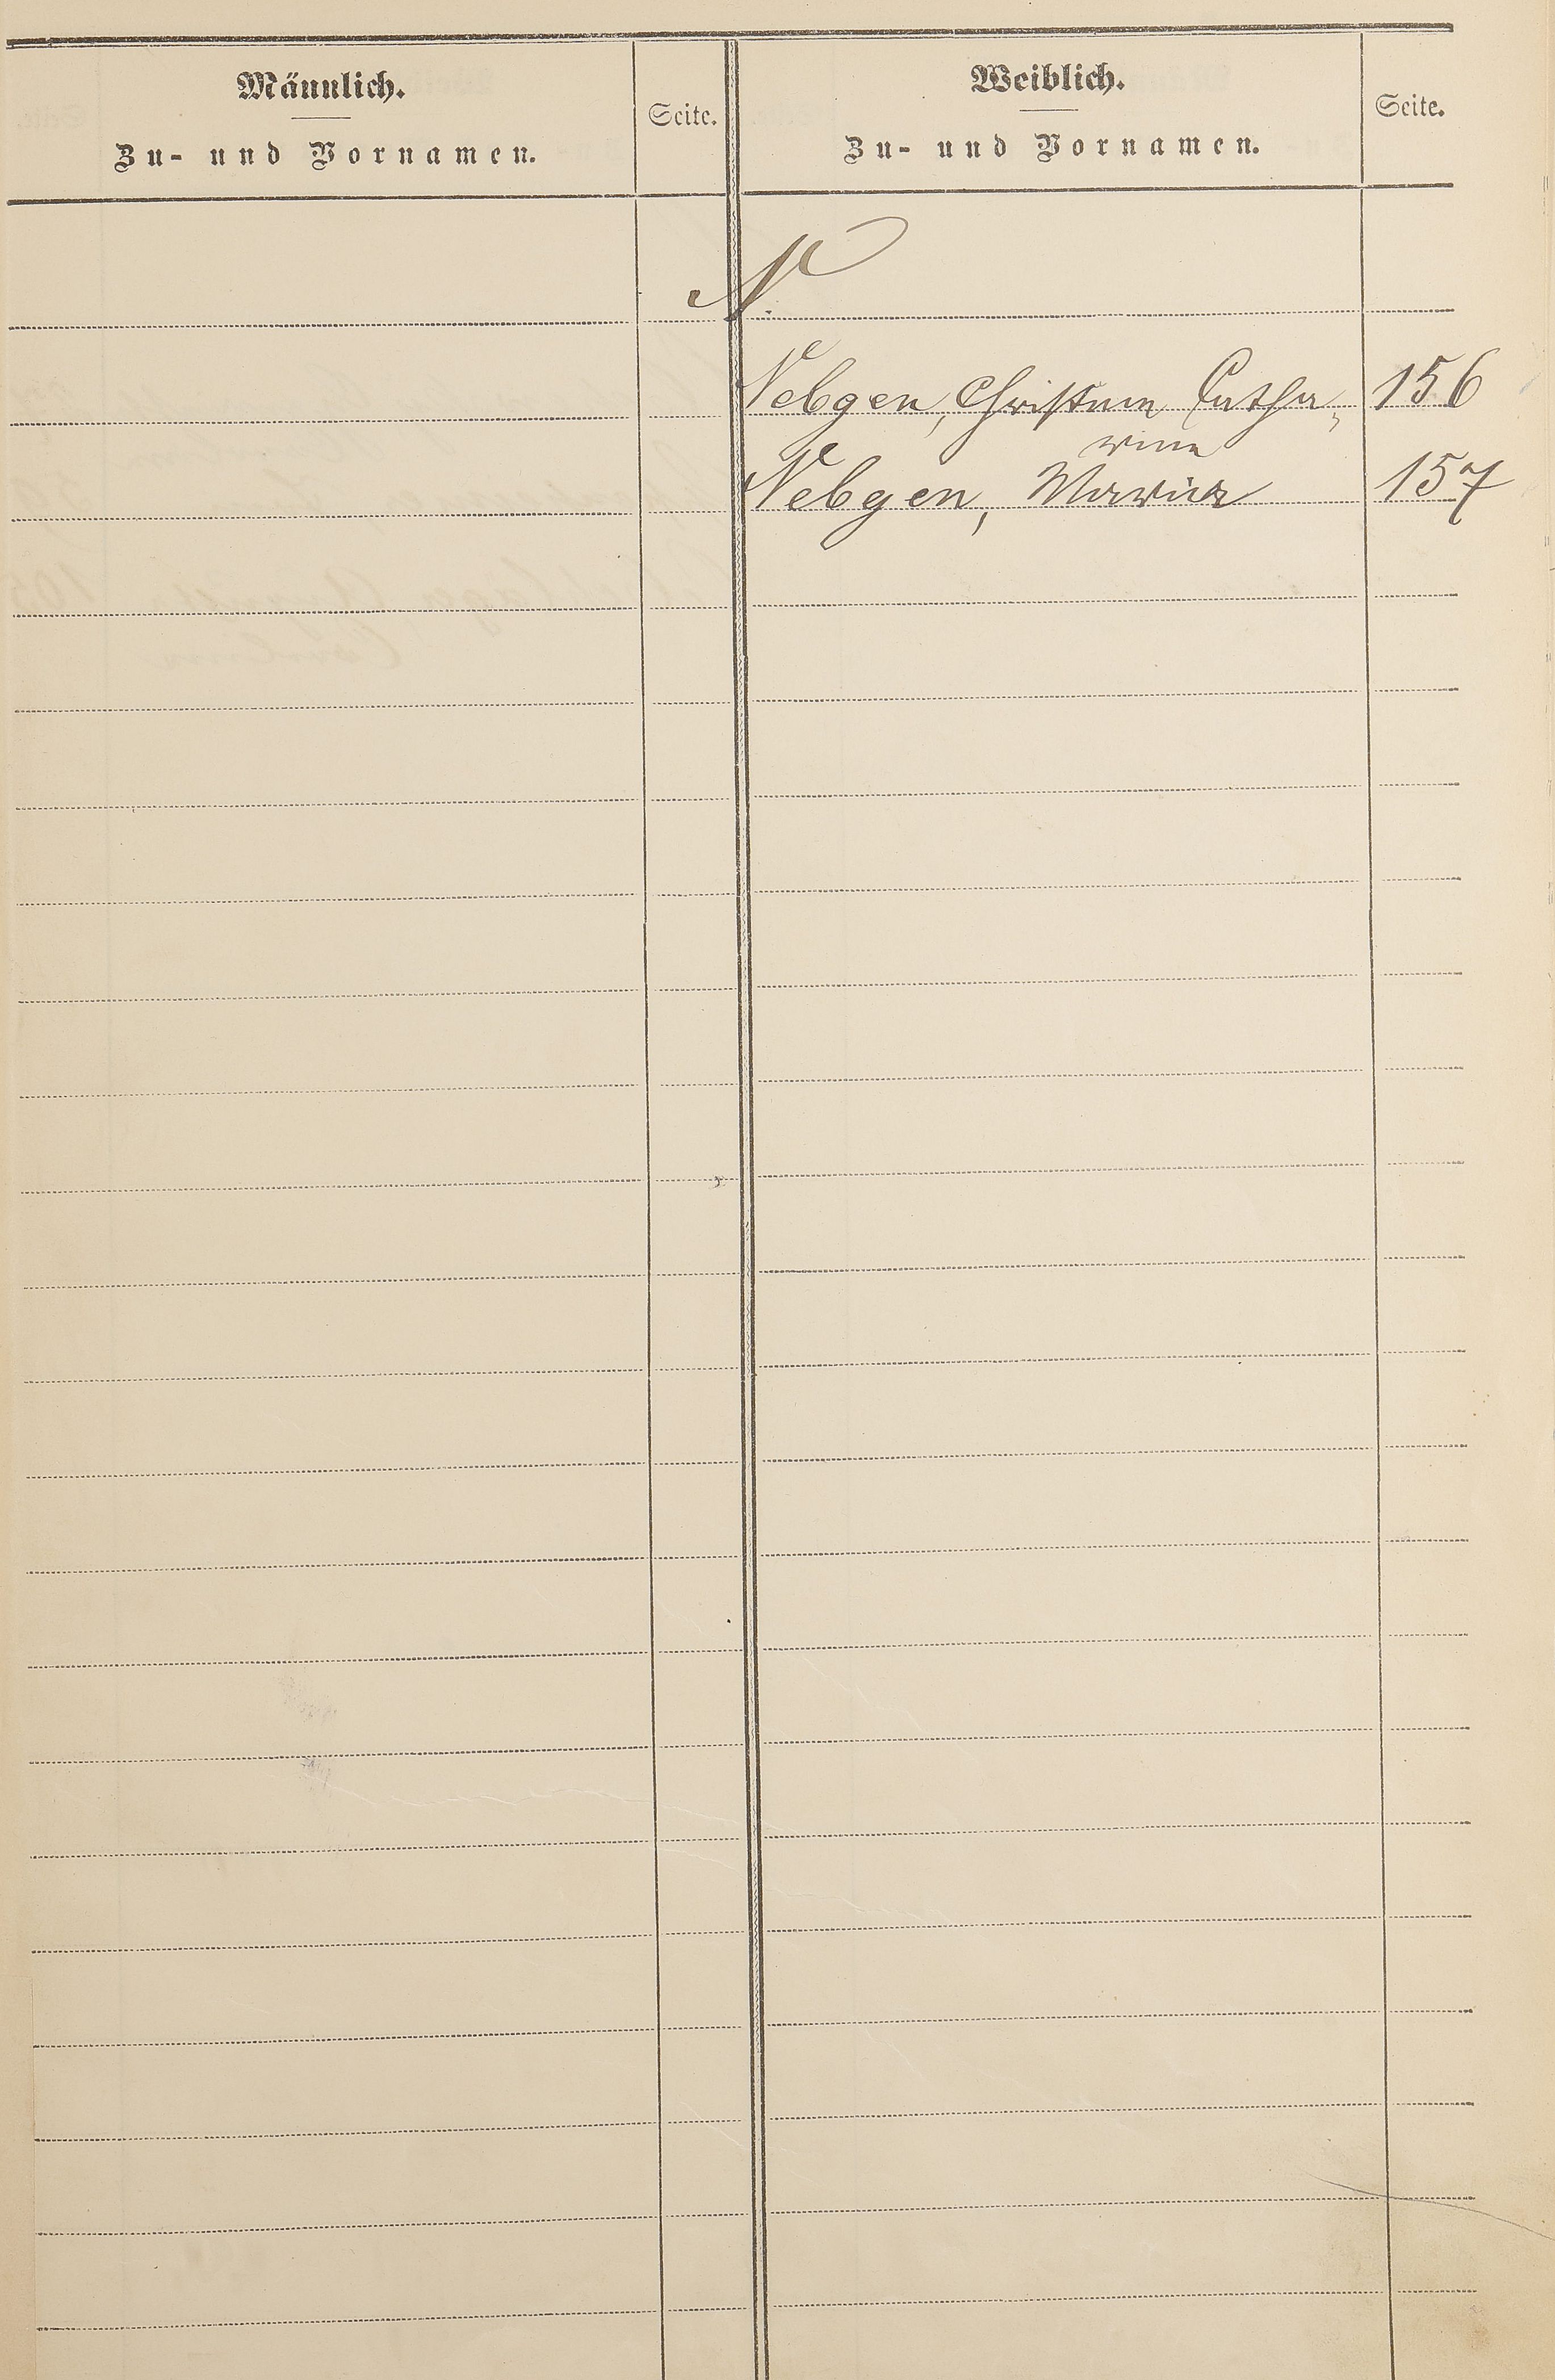 Männlich.
Zu- und Vornamen.
Seite.
Weiblich.
Zu- und Vornamen.
Seite.
N.
Nebgen, Christine Catha- 156
rine
Nebgen, Maria 157